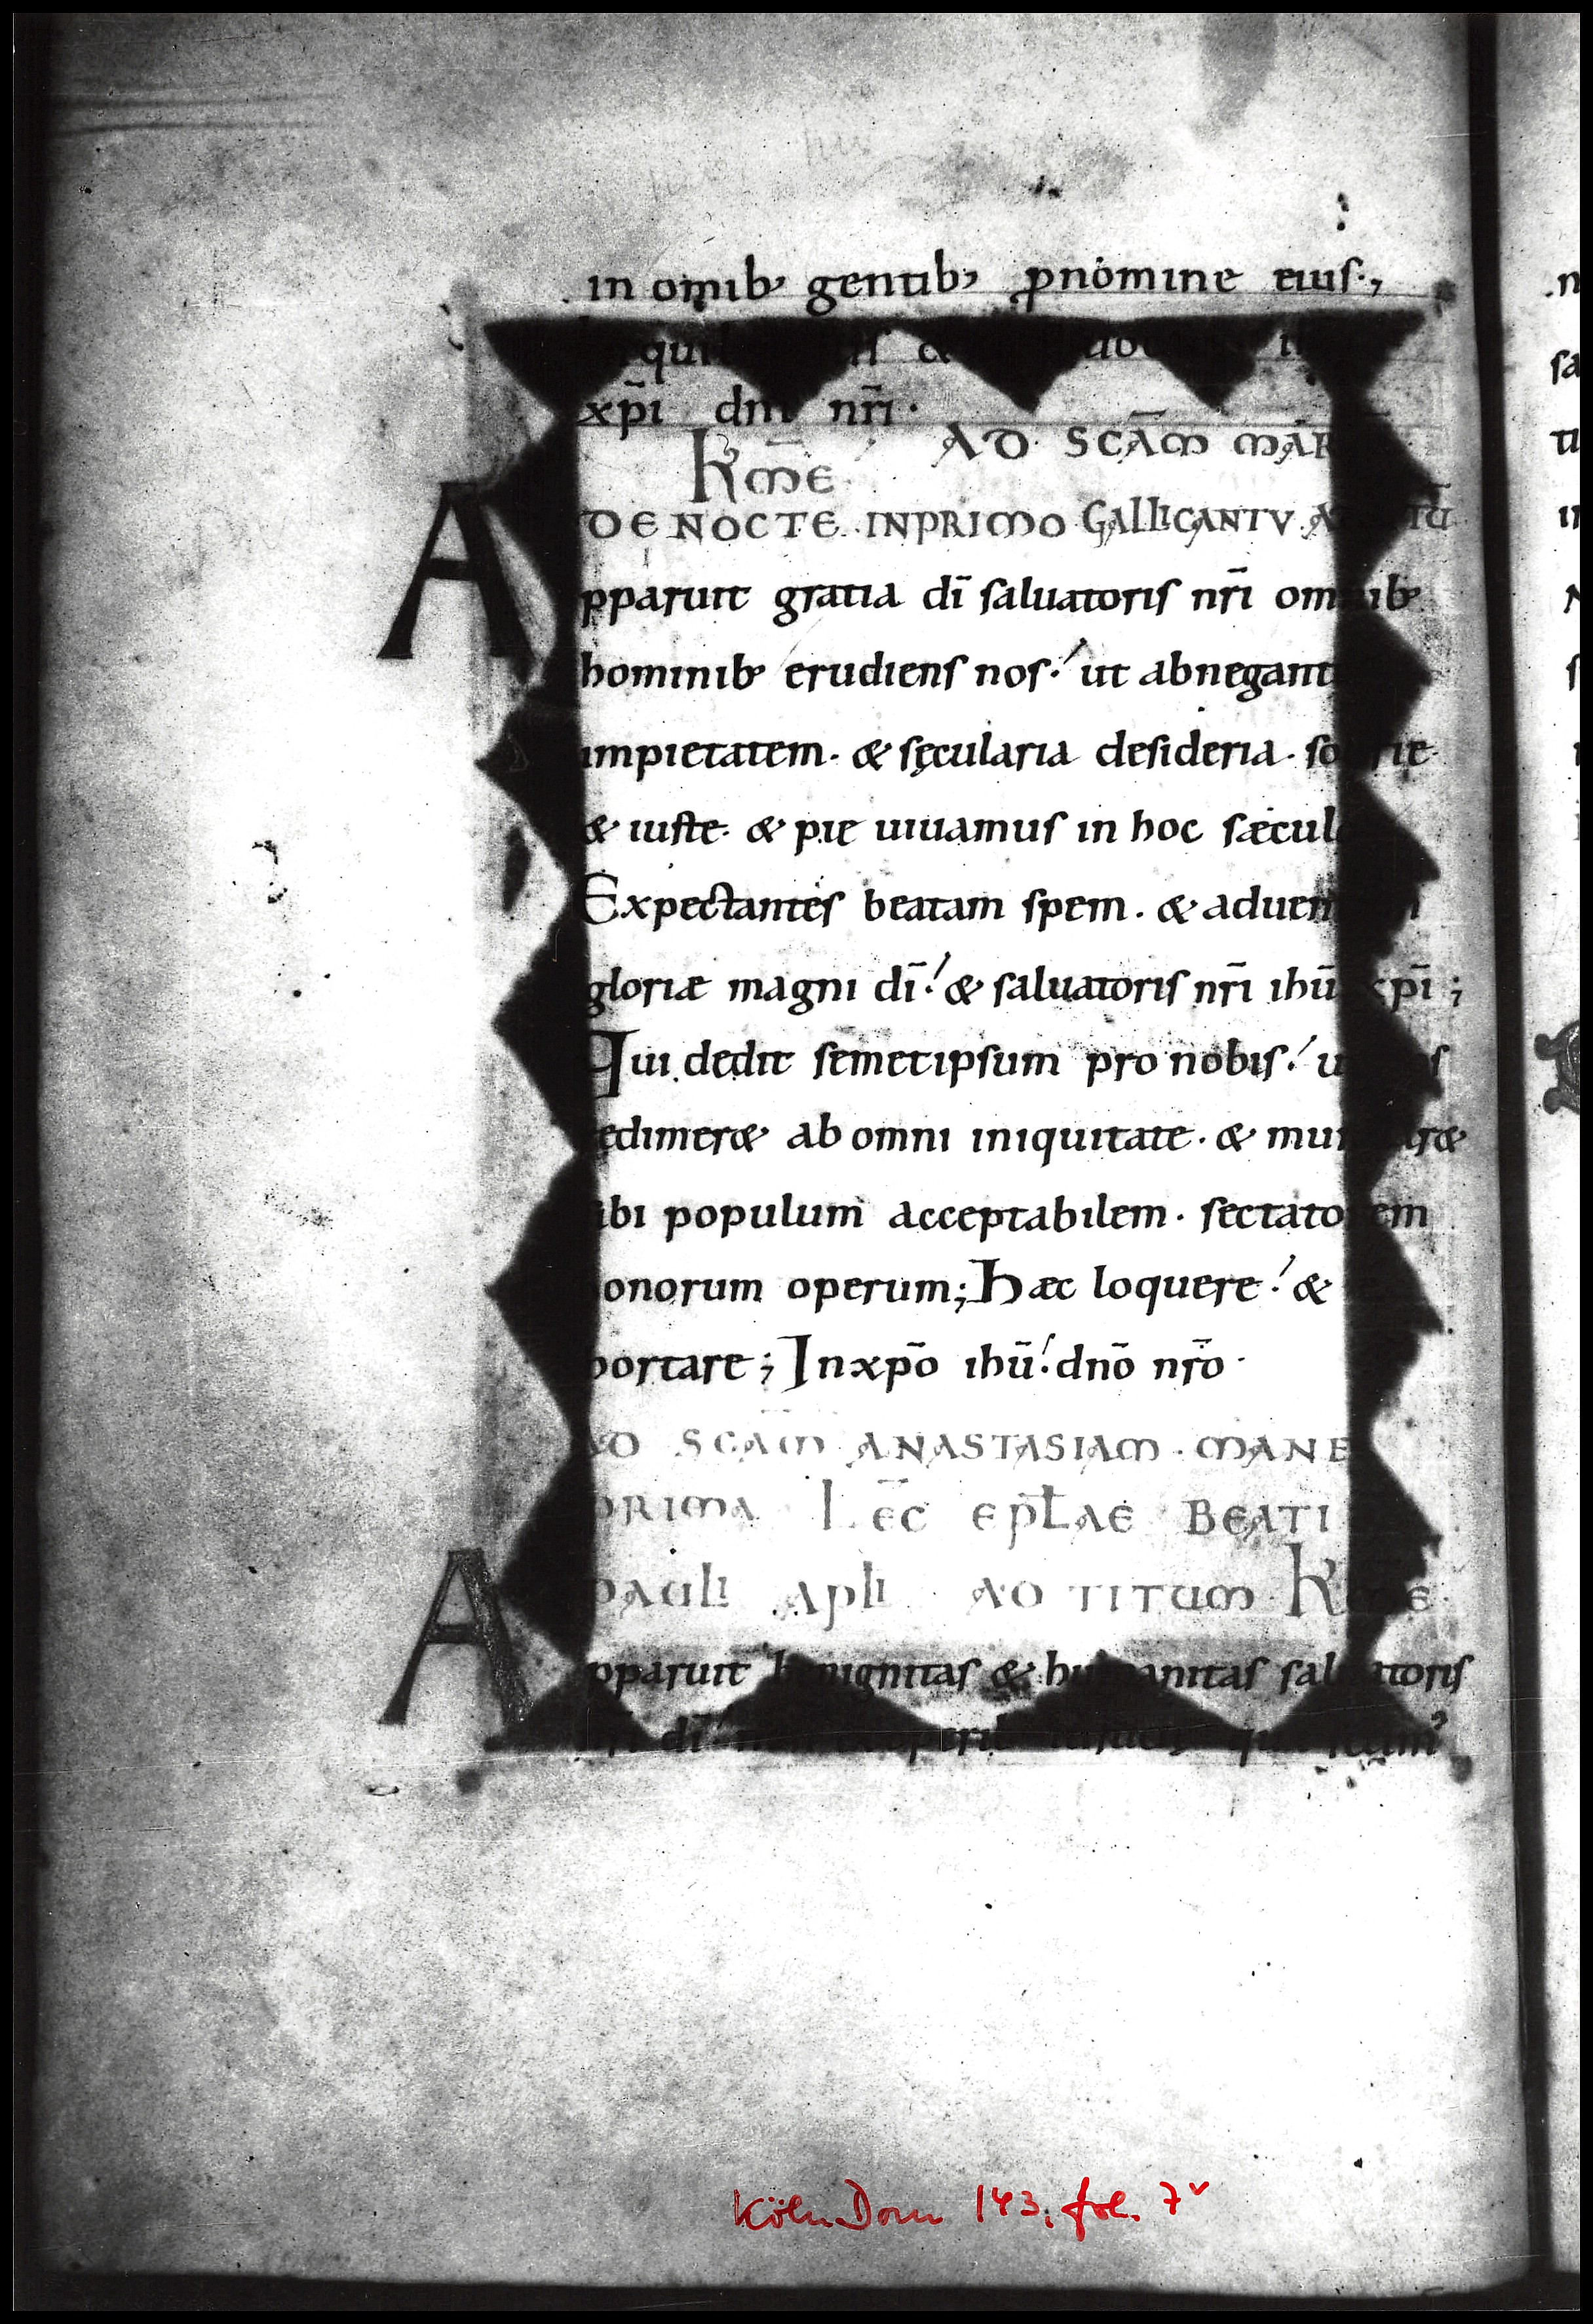 in omīib; gentib; ꝓ nomine eius·,
xp̄i dn̄i nr̄i·
AD SCĀM MAR
K̄ME
DE NOCTE INPRIMO GALLICANTV
Apparuit gratia dī saluatoris nr̄i omnib;
hominib; erudiens nos· ut abnegant
impietatem· & sęcularia desideria· sobrie
& iuste· & pie uiuamus in hoc sæcul
Expectantes beatam spem· & aduen
gloriæ magni dī· & saluatoris nr̄i ihū xp̄i ;
Qui dedit semetipsum pro nobis· u
edimer& ab omni iniquitate· & mundar&
ibi populum acceptabilem· sectatorem
onorum operum; Hæc loquere· &
ortare ; In xp̄o ihū· dn̄o nr̄o·
AD SCĀM ANASTASIAM· MANE
PRIMA LĒC EPŁAE BEATI
PAULI APLI AD TITUM K̄ME·
Apparuit benignitas & humanitas saluatoris
dī
Köln Dom 143, fol. 7v